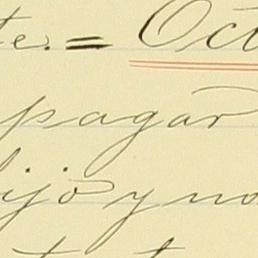 te. = Oct
pagar
hijo y no